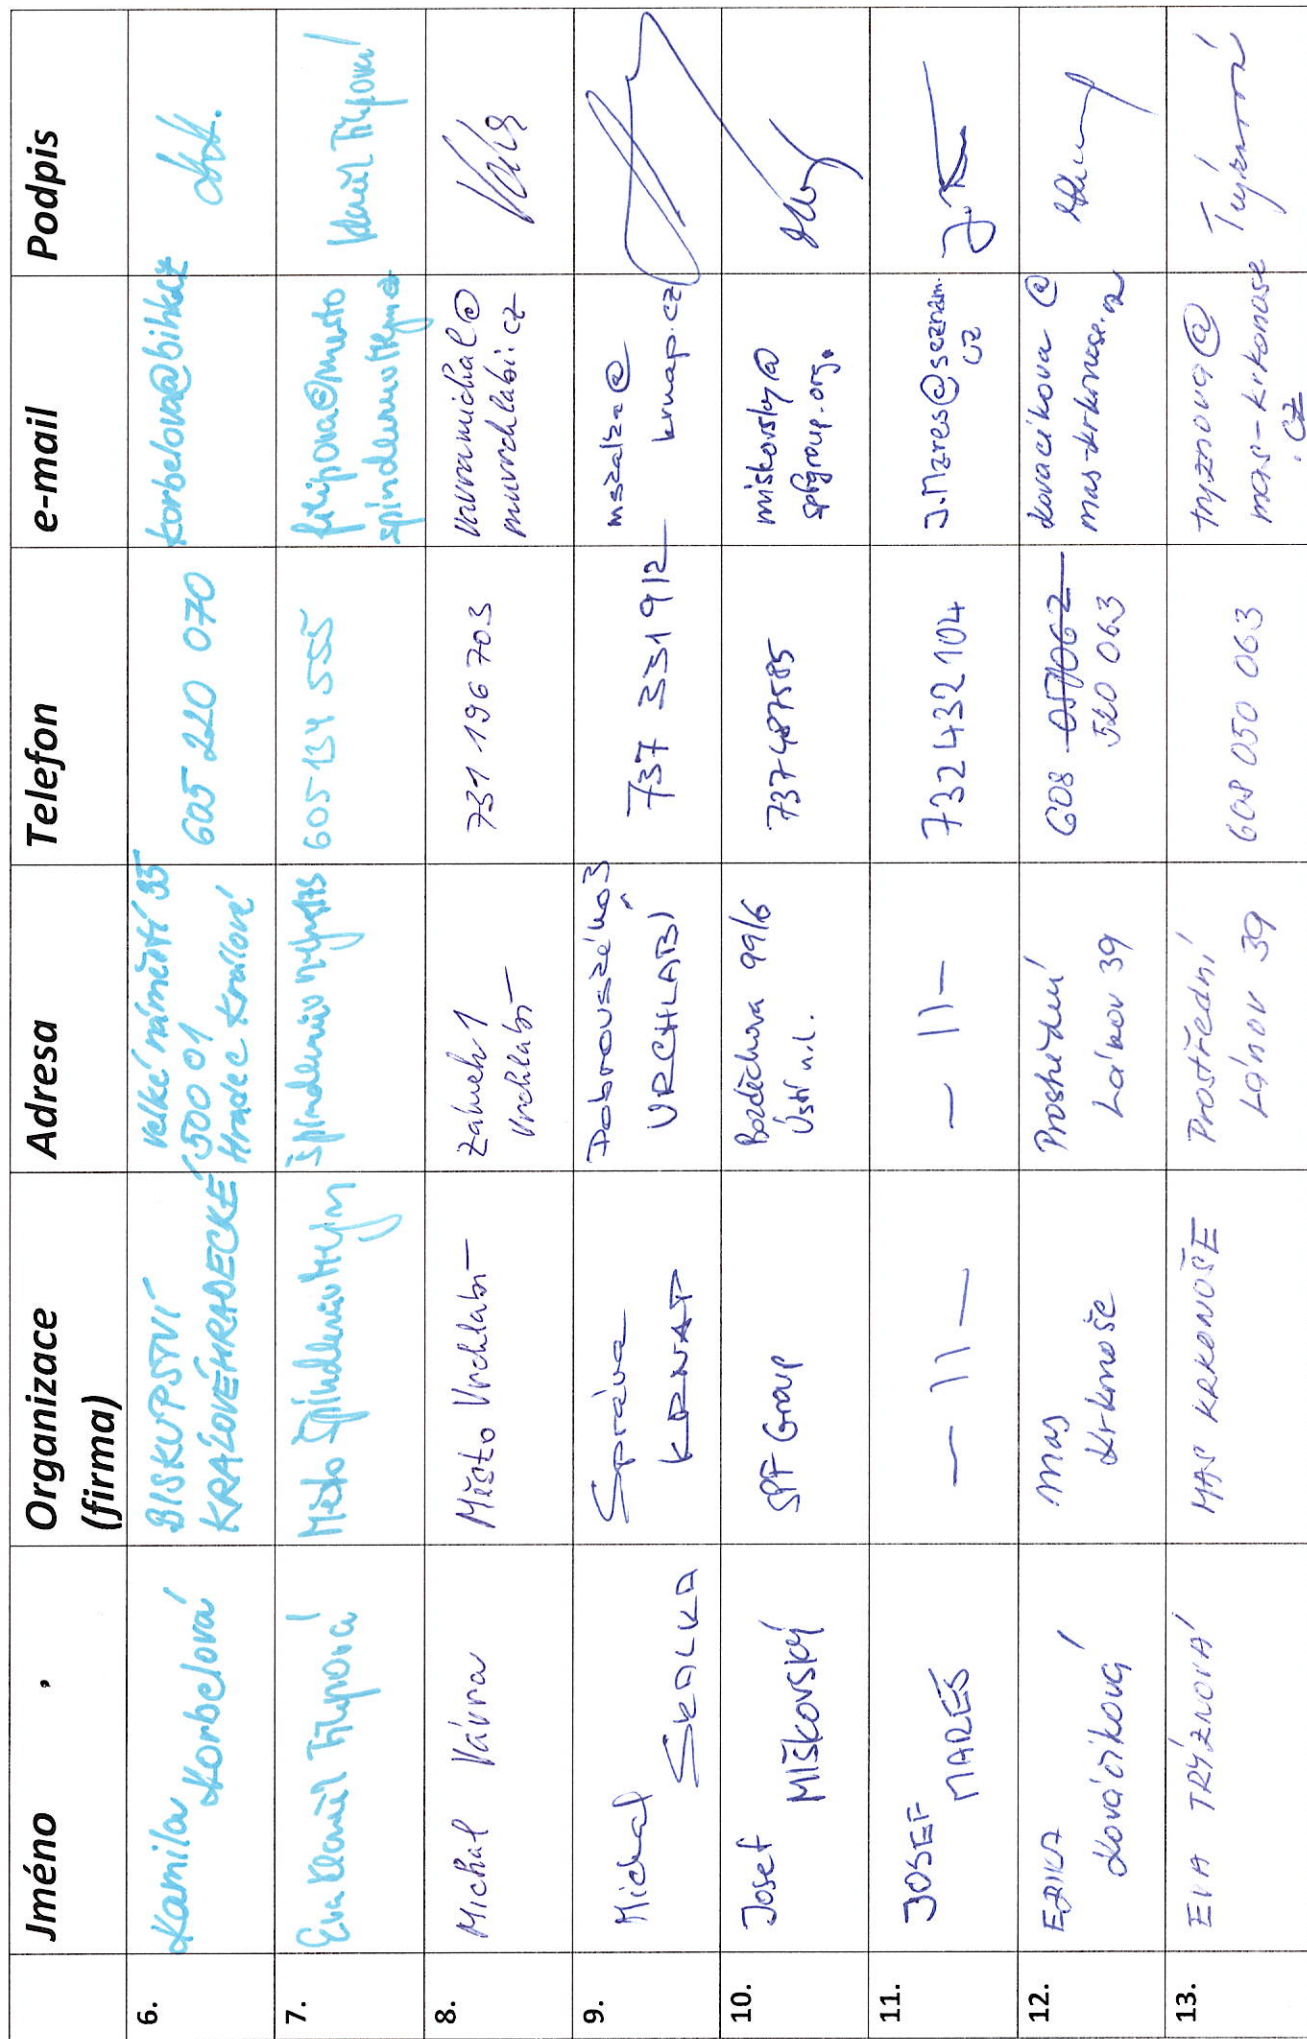 Jméno
Organizace
(firma)
Adresa
Telefon
e-mail
Podpis
6.
Kamila
Korbelová
BISKUPSTVÍ
KRÁLOVÉHRADECKÉ
Velké náměstí 35
500 01
Hradec Králové
605 220 070
korbelova@bihk.cz
7.
Eva Filipová
Město Špindlerův Mlýn
Špindlerův Mlýn
605 134 555
filipova@mesto
8.
Michal Vávra
Město Vrchlabí
Zámek 1
Vrchlabí
731 196 703
vavramichal@
muvrchlabi.cz
9.
Michal
SKALKA
Správa
KRNAP
Dobrovského 3
VRCHLABÍ
737 331 912
mskalka@
krnap.cz
10.
Josef
MIŠKOVSKÝ
SPF Group
Bozděchova 99/6
Ústí n.L.
737487585
miskovsky@
spfgroup.org
11.
JOSEF
MAREŠ
- 11 -
- 11 -
732 432 104
J.Mares@seznam.
cz
12.
ERIKA
Kováčiková
MAS
Krkonoše
Prostřední
Lánov 39
608
520 063
kovacikova@
mas-krkonose.cz
13.
EVA TRÝZNOVÁ
MAS KRKONOŠE
Prostřední
Lánov 39
608 050 063
tryznova@
mas-krkonose
.cz
Trýznová